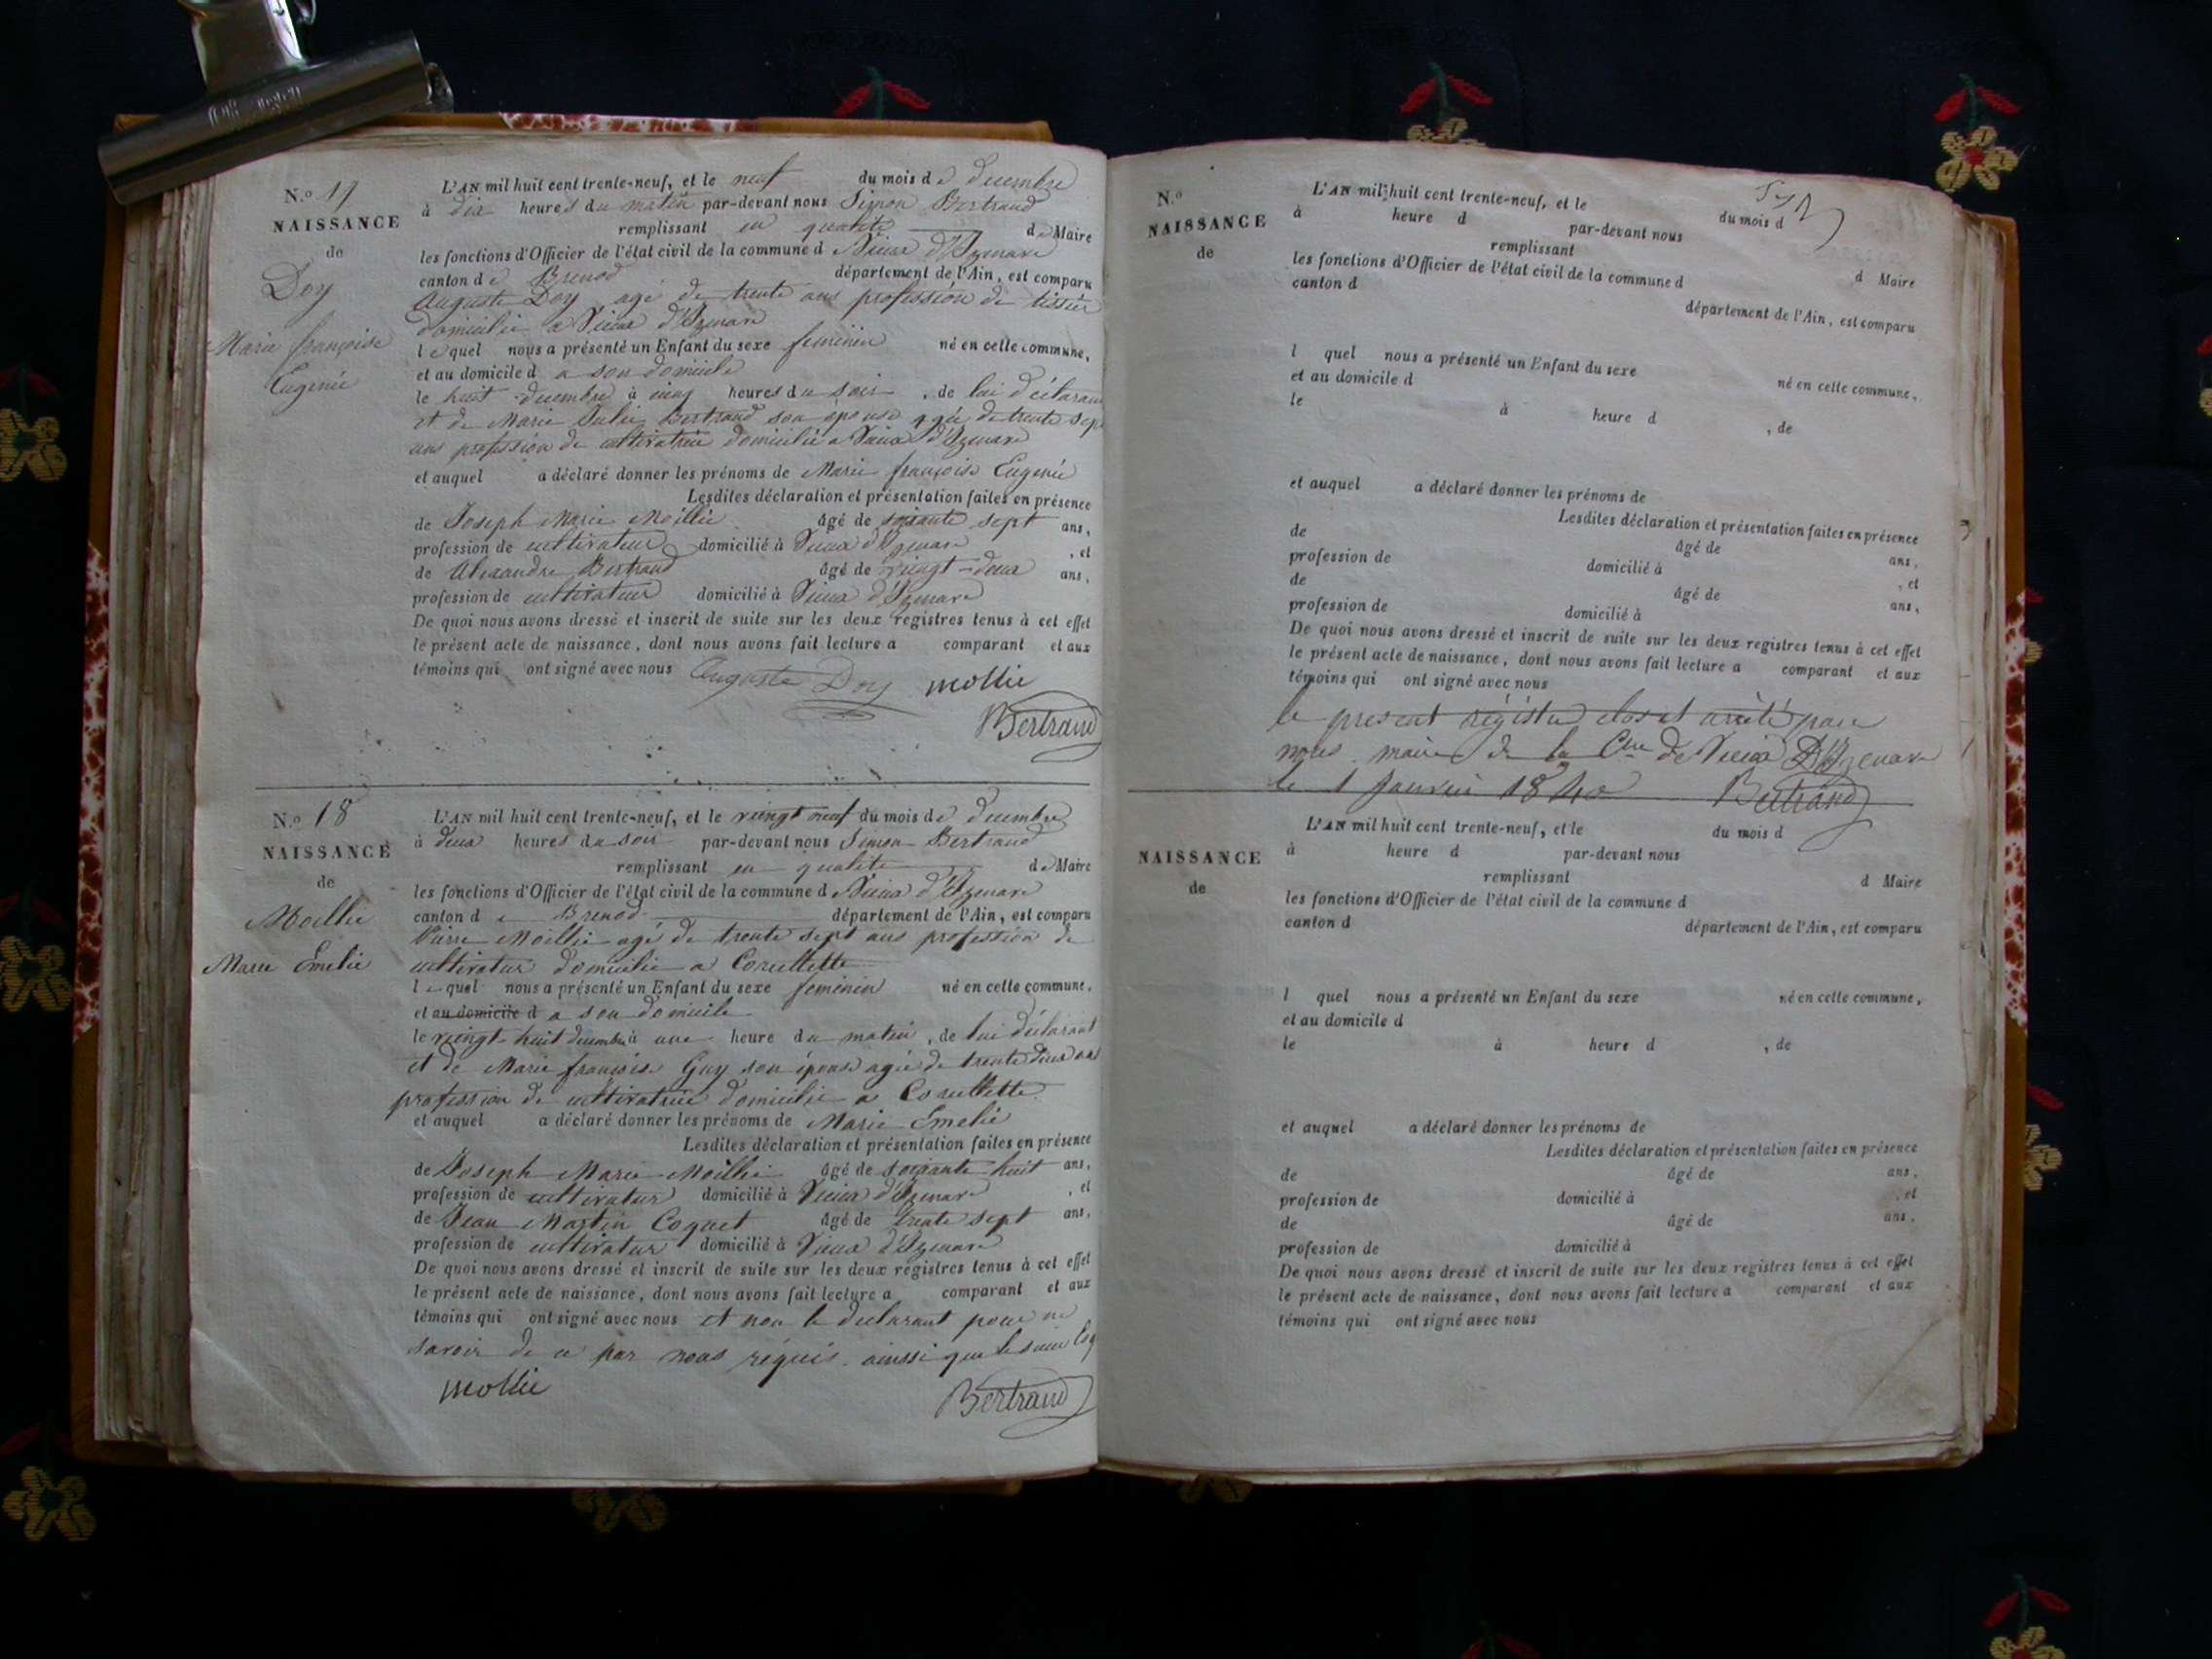 N.o 17
NAISSANCE
de
Doy
Marie françoise
Eugenie
L'AN mil huit cent trente-neuf, et le neuf du mois de decembre
à dix heures du matin par-devant nous Simon Bertrand
remplissant en qualité de Maire
les fonctions d'Officier de l'état civil de la commune d Vieux d'Izenave
canton de Brenod département de l'Ain, est comparu
Auguste Doy agé de trente ans profession de tissier
domicilié a Vieux d'Izenave
lequel nous a présenté un Enfant du sexe feminin né en cette commune,
et au domicile d a son domicile
le huit decembre à cinq heures du soir, de lui déclarant
et de Marie Julie Bertrand son épouse agée de trente sept
ans profession de cultivatrice domicilié a Vieux d'Izenave
et auquel a déclaré donner les prénoms de Marie françoise Eugenie
Lesdites déclaration et présentation faites en présence
de Joseph Marie Moillie âgé de soixante sept ans,
profession de cultivateur domicilié à Vieux d'Izenave, et
de Alexandre Bertrand âgé de vingt-deux ans,
profession de cultivateur domicilié à Vieux d'Izenave
De quoi nous avons dressé et inscrit de suite sur les deux registres tenus à cet effet
le présent acte de naissance, dont nous avons fait lecture a comparant et aux
témoins qui ont signé avec nous Auguste Doy Mollie
Bertrand
N.o 18
NAISSANCE
de
Moillie
Marie Emelie
L'AN mil huit cent trente-neuf, et le vingt neuf du mois de decembre
à deux heures du soir par-devant nous Simon Bertrand
remplissant en qualité de Maire
les fonctions d'Officier de l'état civil de la commune d Vieux d'Izenave
canton de Brenod département de l'Ain, est comparu
Pierre Moillie agé de trente sept ans profession de
cultivateur domicilié a Corcellette
lequel nous a présenté un Enfant du sexe feminin né en cette commune,
et au domicile d a son domicile
le vingt-huit decembre à une heure du matin, de lui déclarant
et de Marie françoise Guy son épouse agée de trente deux ans
profession de cultivatrice domicilié a Corcellette
et auquel a déclaré donner les prénoms de Marie Emelie
Lesdites déclaration et présentation faites en présence
de Joseph Marie Moillie âgé de soixante huit ans,
profession de cultivateur domicilié à Vieux d'Izenave, et
de Jean Martin Coquet âgé de trente sept ans,
profession de cultivateur domicilié à Vieux d'Izenave
De quoi nous avons dressé et inscrit de suite sur les deux registres tenus à cet effet
le présent acte de naissance, dont nous avons fait lecture a comparant et aux
témoins qui ont signé avec nous et non le declarant pour ne
savoir de ce par nous réquis. ainsi que le
Mollie Bertrand
N.o
NAISSANCE
de
L'AN mil huit cent trente-neuf, et le du mois d
à heure d par-devant nous
remplissant d Maire
les fonctions d'Officier de l'état civil de la commune d
canton d département de l'Ain, est comparu
l quel nous a présenté un Enfant du sexe né en cette commune,
et au domicile d
le à heure d , de
et auquel a déclaré donner les prénoms de
Lesdites déclaration et présentation faites en présence
de âgé de ans,
profession de domicilié à , et
de âgé de ans,
profession de domicilié à
De quoi nous avons dressé et inscrit de suite sur les deux registres tenus à cet effet
le présent acte de naissance, dont nous avons fait lecture a comparant et aux
témoins qui ont signé avec nous
le present régistre clos et arrêté par
nous maire de la Cne de Vieux D'Izenave
le 1 Janvier 1840 Bertrand
NAISSANCE
de
L'AN mil huit cent trente-neuf, et le du mois d
à heure d par-devant nous
remplissant d Maire
les fonctions d'Officier de l'état civil de la commune d
canton d département de l'Ain, est comparu
l quel nous a présenté un Enfant du sexe né en cette commune,
et au domicile d
le à heure d , de
et auquel a déclaré donner les prénoms de
Lesdites déclaration et présentation faites en présence
de âgé de ans,
profession de domicilié à , et
de âgé de ans,
profession de domicilié à
De quoi nous avons dressé et inscrit de suite sur les deux registres tenus à cet effet
le présent acte de naissance, dont nous avons fait lecture a comparant et aux
témoins qui ont signé avec nous